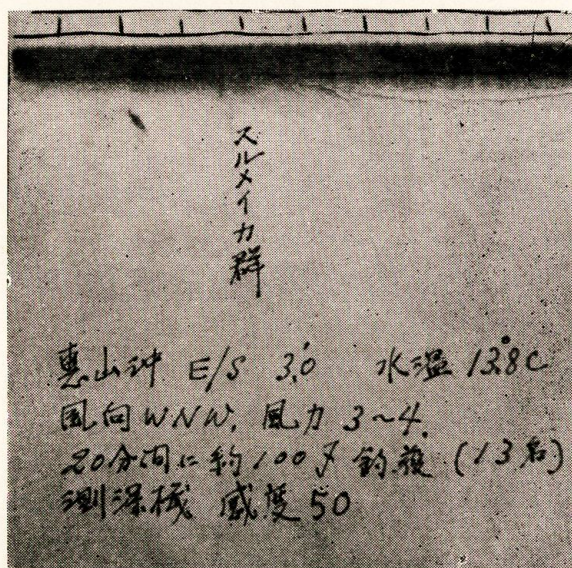 スルメイカ群
恵山沖 E/S 3.0 水温 13.8°C
風向WNW, 風力 3~4.
20分間に約100 釣獲 (13名)
測深機 感度50